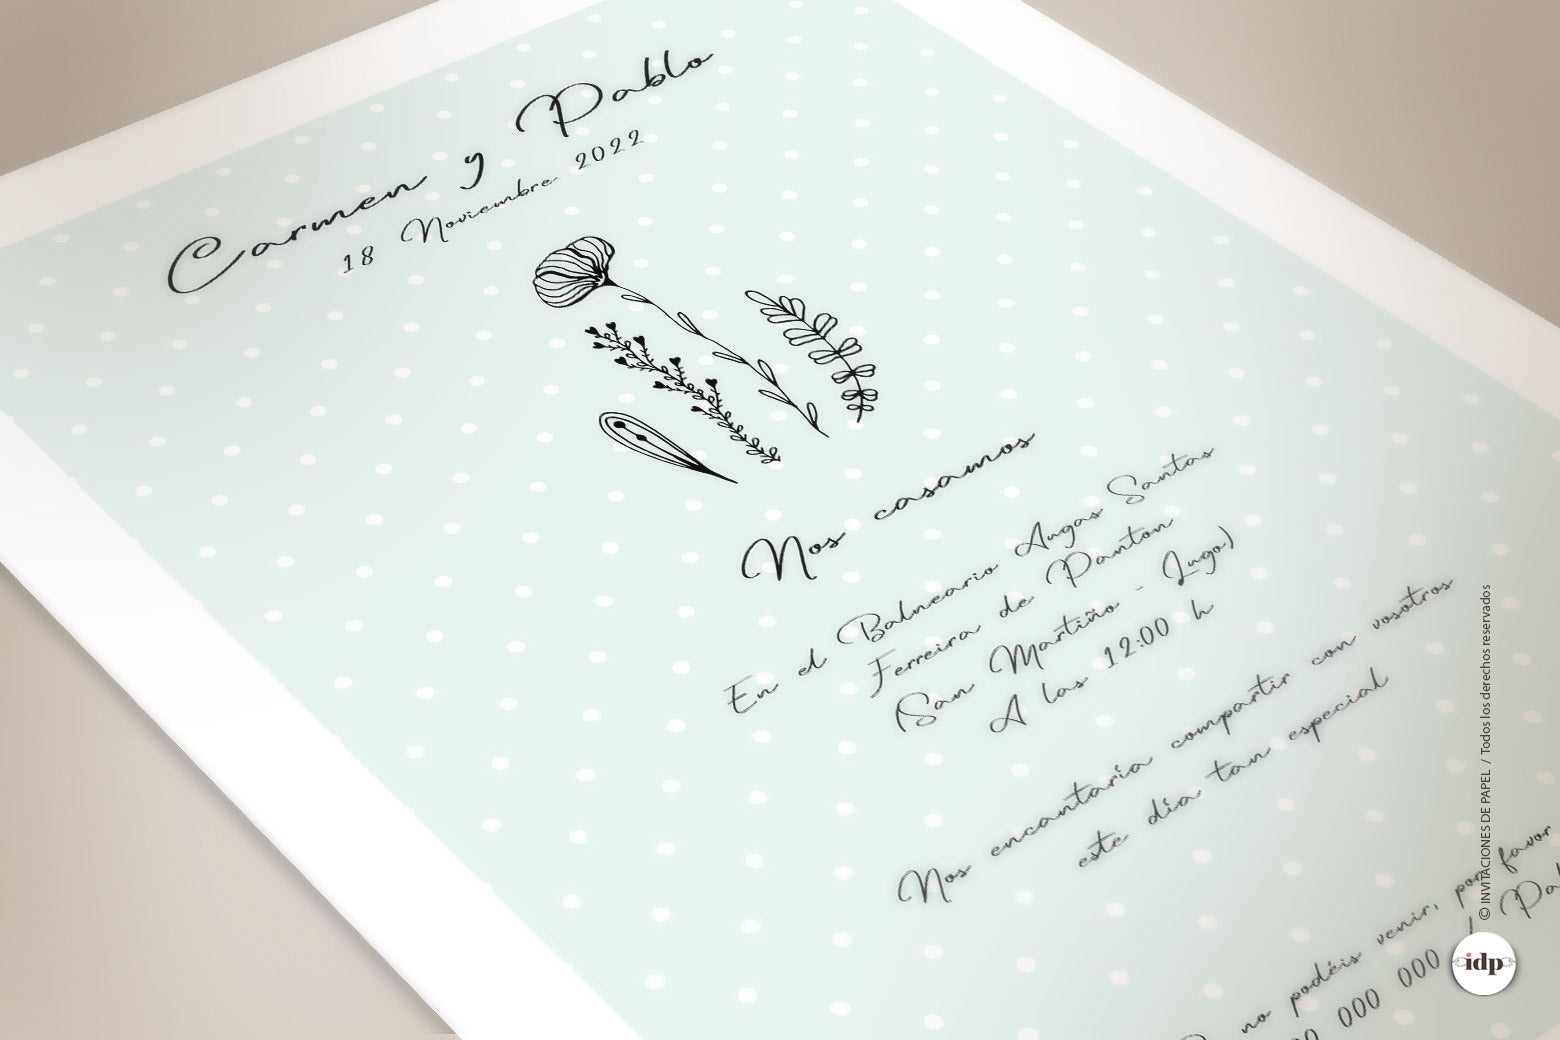 Carmen y Pablo
18 Noviembre 2022
Nos casamos
En el Balneario Augas Santas
Ferreira de Panton
(San Martiño - Lugo)
A las 12:00 h
Nos encantaría compartir con vosotros
este día tan especial
no podéis venir, por favor
000 000 /
© INVITACIONES DE PAPEL / Todos los derechos reservados
idp